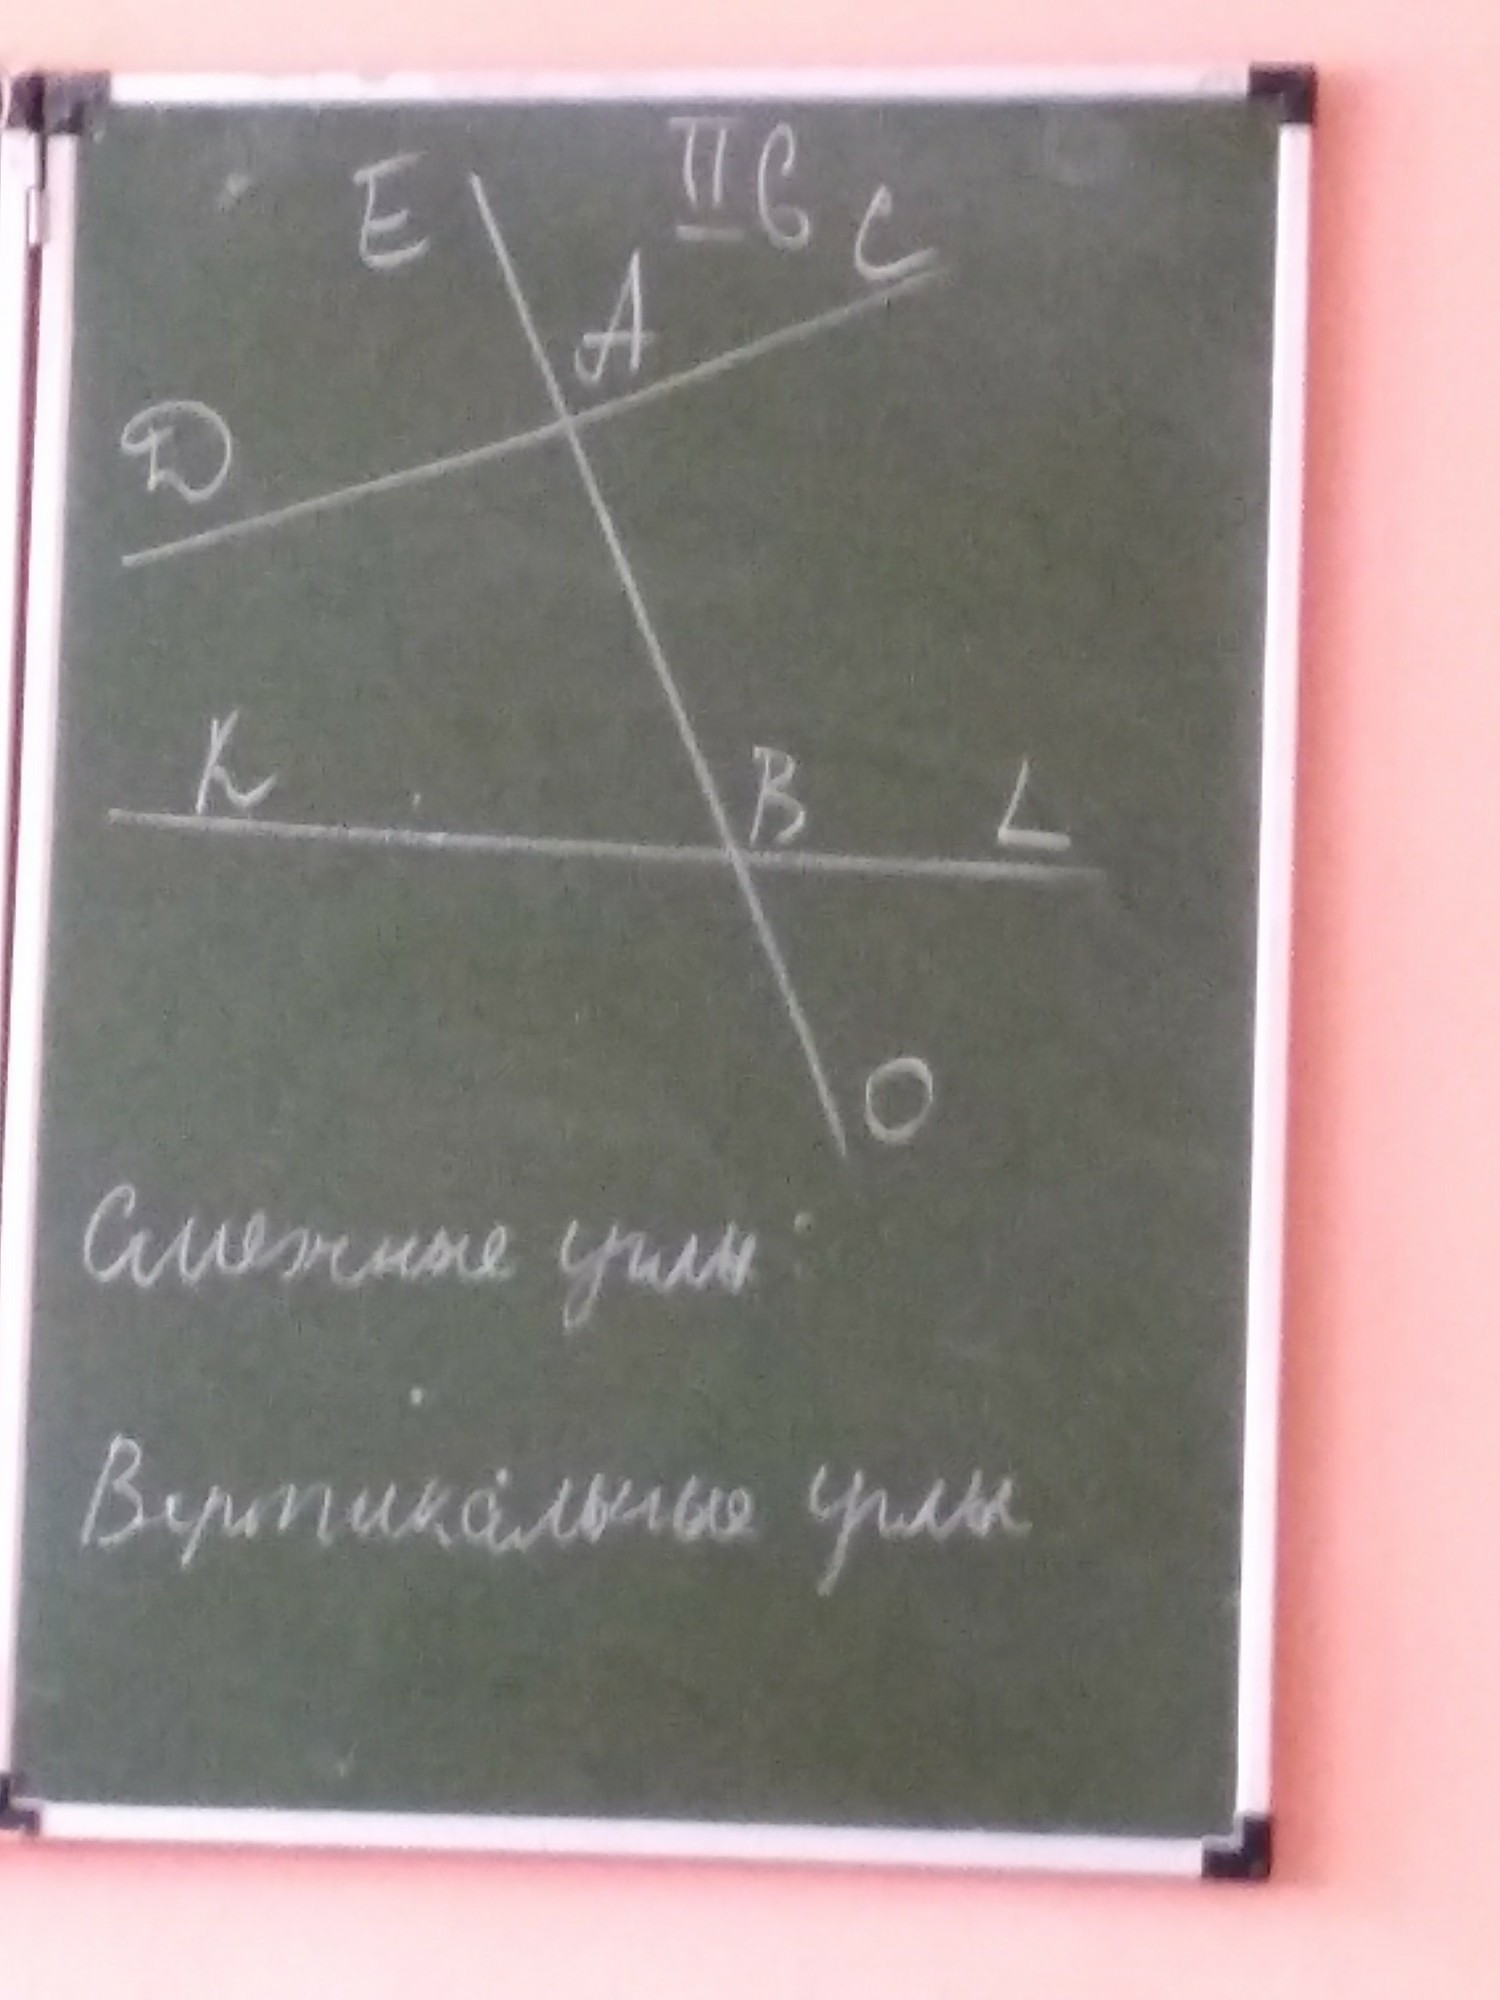 II в
E
A
C
D
K
B
L
O
Смежные углы:
Вертикальные углы